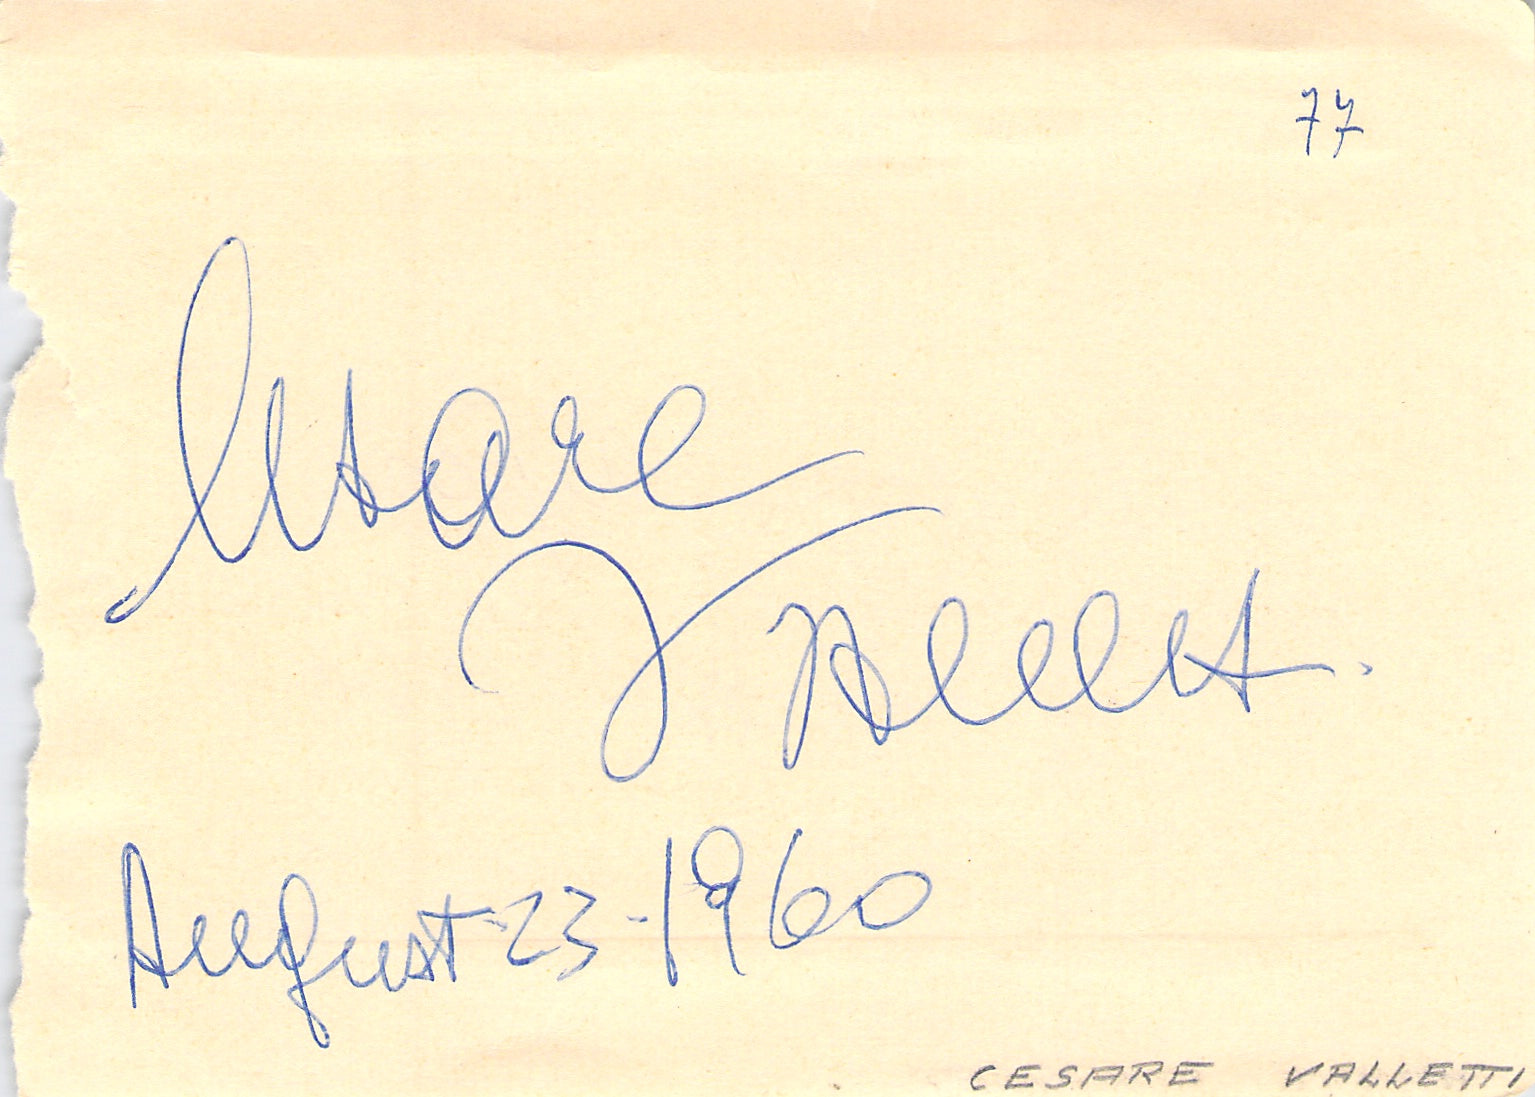 77
Cesare
Valletti
August 23-1960
CESARE VALLETTI